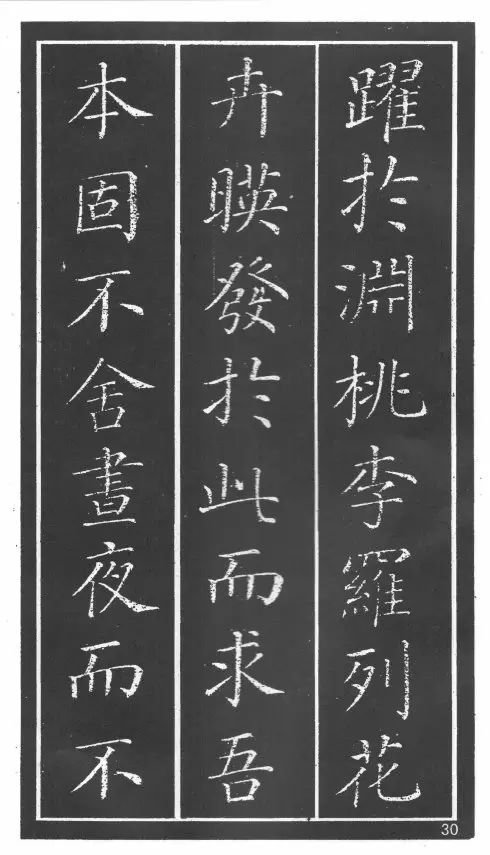 躍於淵桃李羅列花
卉暎發於此而求吾
本固不舍晝夜而不
30